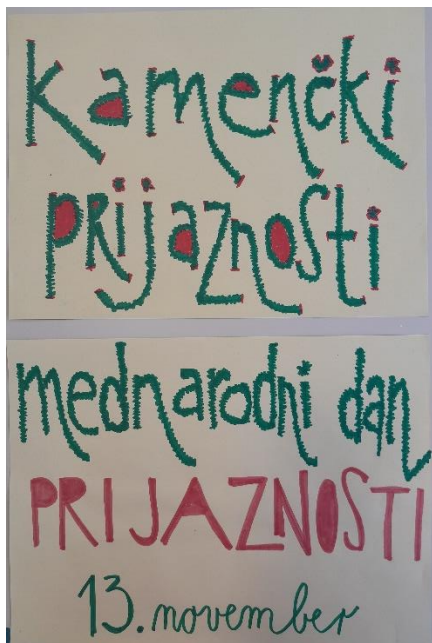 kamenčki
prijaznosti
mednarodni dan
PRIJAZNOSTI
13. november